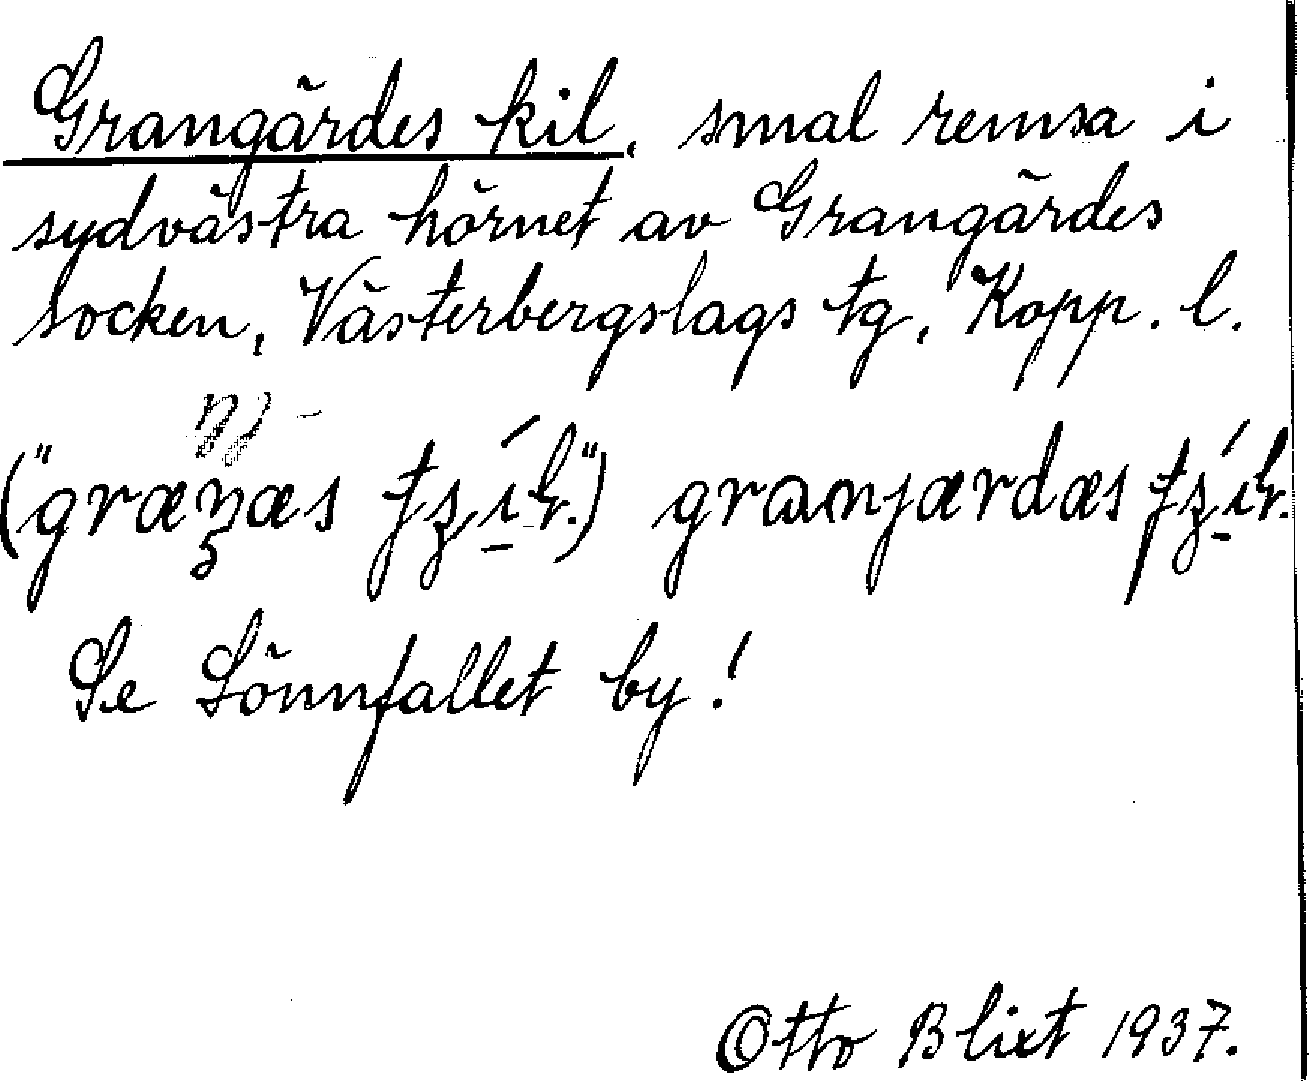 Grangärdes kil, smal remsa i
sydvästra hörnet av Grangärdes
socken, Västerbergslags tg, Kopp. l.
granjærdæs
Se Sönnfallet by!
Otto Blixt 1937.